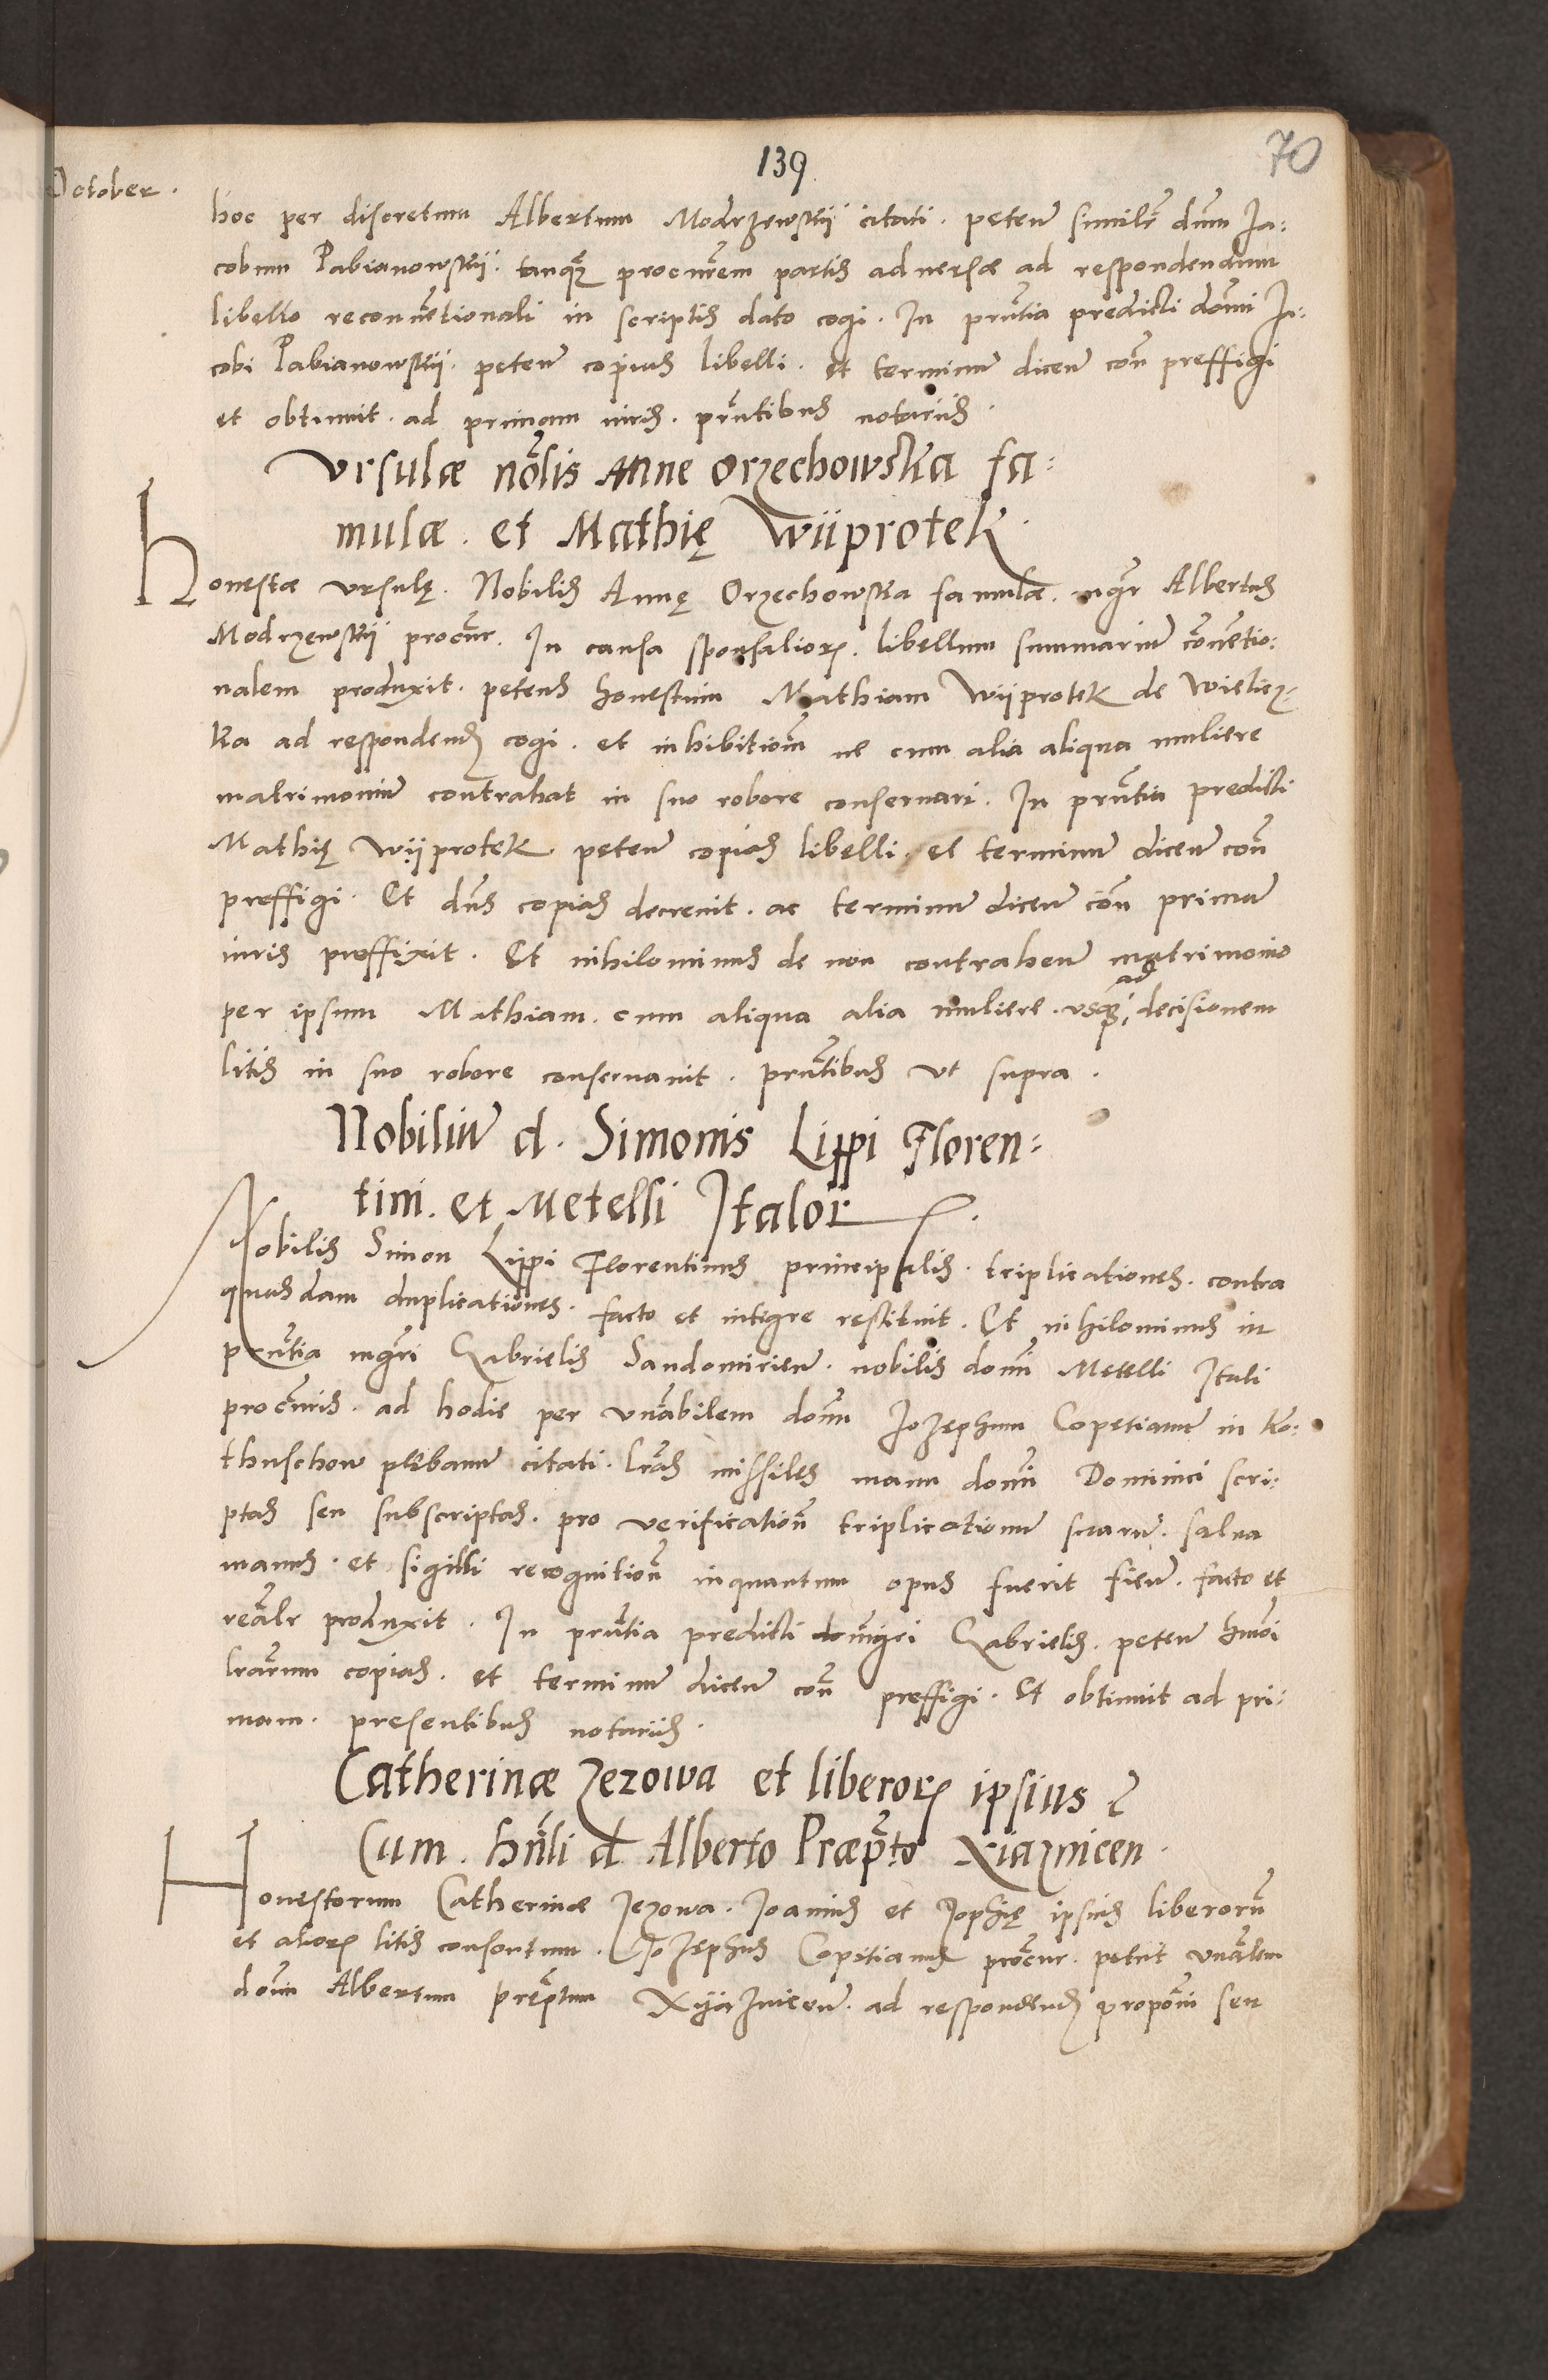 139
70
October.
hoc per discretum Albertum Modrzewskij citati. peten̄ similr̄ dnm̄ Ja:
cobum Pabianowskij. tanqȝ procur̄em partis aduersæ ad respondendum
libello reconuētionali in scriptis dato cogi. In prn̄tia predicti domī Ja:
cobi Pabianowskij. peten̄ copias libelli. et terminū dicen̄ con̄ preffigi
et obtinuit. ad primam iuris. prn̄tibus notariis.
Vrsulæ nōlis Anne Orzechowska fa:
mulæ. et Mathię Wijprotek.
Honestæ Vrsulę. Nobilis Annę Orzechowska famulæ. mgr̄ Albertus
Modrzewskij procur̄. In causa sponsalioꝝ. libellum summariū cōuētio:
nalem produxit. petens honestum Mathiam Wijprotek de Wielicz:
ka ad respondendꝫ cogi. et inhibitiom̄ ne cum alia aliqua muliere
matrimoniū contrahat in suo robore conseruari. In prn̄tia predicti
Mathię Wijprotek peten̄ copias libelli. et terminū dicen̄ con̄
preffigi. Et dn̄s copias decreuit. ac terminū dicen̄ con̄ primā
iuris preffixit. Et nihilominus de non contrahen̄ matrimonio
ad
per ipsum Mathiam. cum aliqua alia muliere. vsqȝ decisionem
litis in suo robore conseruauit. prn̄tibus vt supra.
Nobiliū d. Simonis Lippi Floren:
tini. et Metelli Italoꝝ.
Nobilis Simon Lippi Florentinus principalis. triplicationes. contra
quasdam duplicationes. facto et integre restituit. Et nihilominus in
prn̄tia mgr̄i Gabrielis Sandomirien̄. nobilis domī Metelli Itali
procur̄is. ad hodie per vn̄abilem domn̄ Jozephum Copetianū in Ko:
thuschow plebanū citati. lrās missiles manu domī Dominici scri:
ptas seu subscriptas. pro verification̄ triplicationū suarū. salua
manus. et sigilli recognition̄ inquantum opus fuerit fien̄. facto et
reālr produxit. In prn̄tia predicti mgr̄i Gabrielis. peten̄ hmōi
lrārum copias. et terminū dicen̄ con̄ preffigi. Et obtinuit ad pri:
mam. presentibus notariis.
Catherinæ Jezowa et liberoꝝ ipsius
Cum. hn̄li d. Alberto Præpt̄o Xiaznicen.
Honestorum Catherinæ Jezowa. Joannis et Zophię ipsius liberorū
et alioꝝ litis consortum. Jozephus Copetianus procur̄. petiit vn̄alem
domn̄ Albertum prep̄tum Xijaznicen̄. ad respondendꝫ propom̄ seu